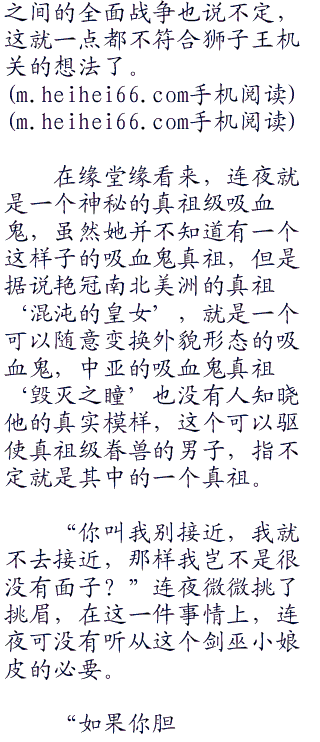 之间的全面战争也说不定，
这就一点都不符合狮子王机
关的想法了。
(m.heihei66.com手机阅读)
(m.heihei66.com手机阅读)
在缘堂缘看来，连夜就
是一个神秘的真祖级吸血
鬼，虽然她并不知道有一个
这样子的吸血鬼真祖，但是
据说艳冠南北美洲的真祖
‘混沌的皇女’，就是一个
可以随意变换外貌形态的吸
血鬼，中亚的吸血鬼真祖
‘毁灭之瞳’也没有人知晓
他的真实模样，这个可以驱
使真祖级眷兽的男子，指不
定就是其中的一个真祖。
“你叫我别接近，我就
不去接近，那样我岂不是很
没有面子？”连夜微微挑了
挑眉，在这一件事情上，连
夜可没有听从这个剑巫小娘
皮的必要。
“如果你胆